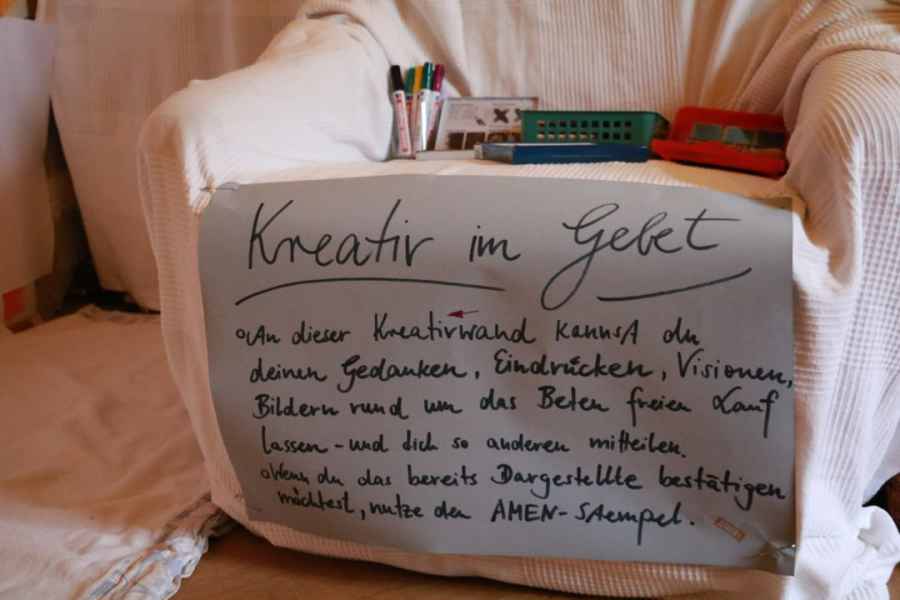 Kreativ im Gebet
An dieser Kreativwand kannst du
deinen Gedanken, Eindrücken, Visionen,
Bildern rund um das Beten freien Lauf
lassen - und dich so anderen mitteilen.
Wenn du das bereits Dargestellte bestätigen
möchtest, nutze den AMEN-Stempel.